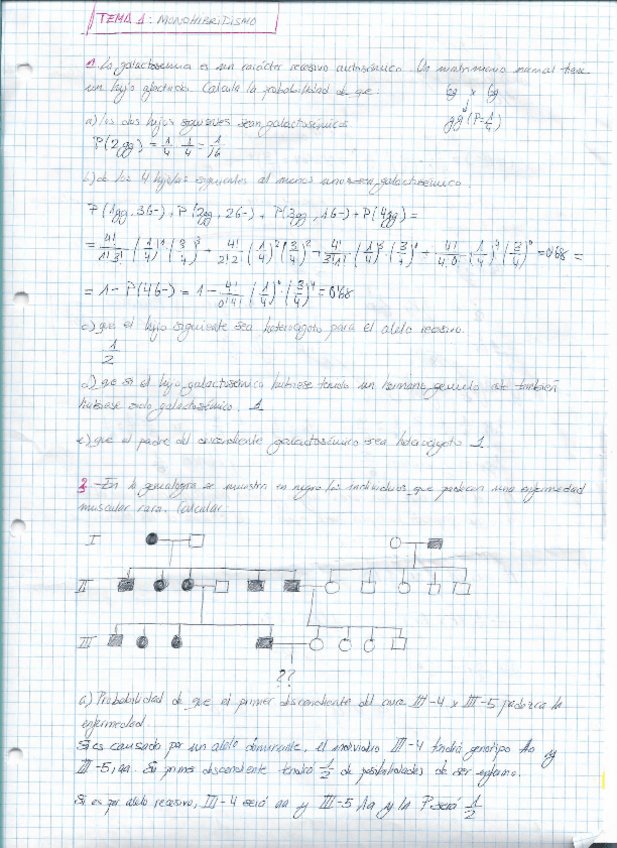 TEMA 1: MONOHIBRIDISMO
1. La galactosemia es un carácter recesivo autosómico. Un matrimonio normal tiene
un hijo afectado. Calcula la probabilidad de que: Gg x Gg
a) los dos hijos siguientes sean galactosémicos gg (P=1/4)
P(2gg) = 1/4 · 1/4 = 1/16
b) de los 4 hijos siguientes al menos uno sea galactosémico.
P(1gg, 3G-) + P(2gg, 2G-) + P(3gg, 1G-) + P(4gg) =
= 4!/1!3! · (1/4)¹ (3/4)³ + 4!/2!2! · (1/4)² (3/4)² + 4!/3!1! · (1/4)³ · (3/4)¹ + 4!/4!0! · (1/4)⁴ (3/4)⁰ = 0'68 =
= 1 - P(4G-) = 1 - 4!/0!4! · (1/4)⁰ · (3/4)⁴ = 0'68
c) que el hijo siguiente sea heterocigoto para el alelo recesivo.
1/2
d) que si el hijo galactosémico hubiese tenido un hermano gemelo también
hubiese sido galactosémico. 1
e) que el padre del descendiente galactosémico sea heterocigoto 1.
- En la genealogía se muestra en negro los individuos que padecen una enfermedad
muscular rara. Calcular:
I
II
III
??
a) Probabilidad de que el primer descendiente del cruce III-4 x III-5 padezca la
enfermedad.
Si es causado por un alelo dominante, el individuo III-4 tendrá genotipo Aa y
III-5, aa. Su primer descendiente tendrá 1/2 de posibilidades de ser enfermo.
Si es por alelo recesivo, III-4 será aa y III-5 Aa y la P será 1/2